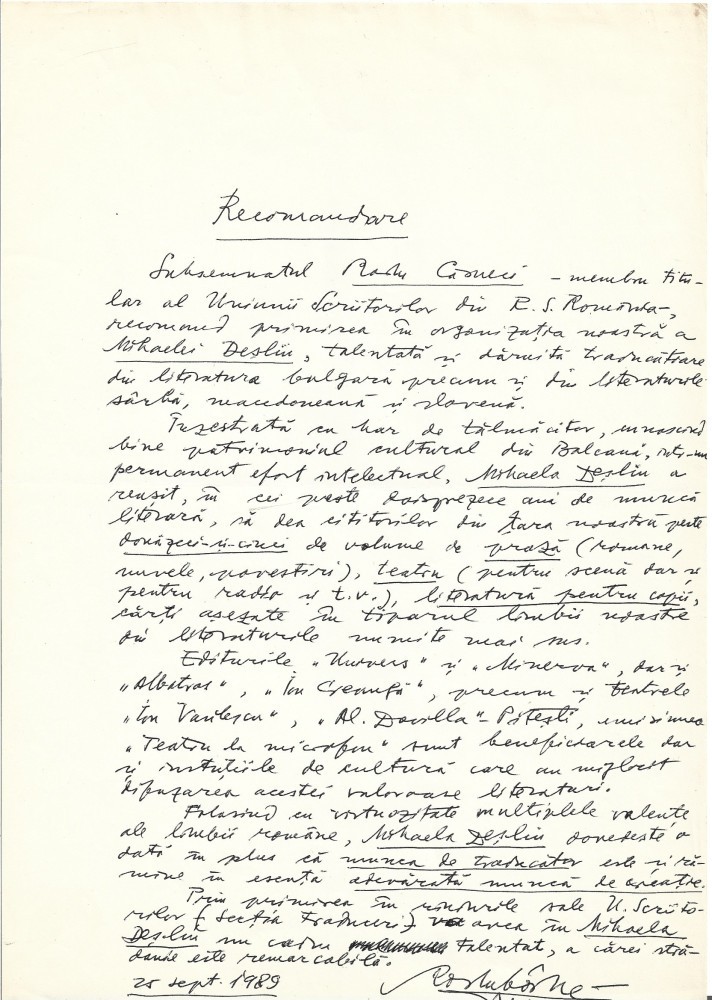 Recomandare
Subsemnatul Radu Cârneci – membru titu-
lar al Uniunii Scriitorilor din R. S. România,
recomand primirea în organizația noastră a
Mihaelei Deșliu, talentată și dăruită traducătoare
din literatura bulgară precum și din literaturile
sârbă, macedoneană și slovenă.
Înzestrată cu har de tălmăcitor, cunoscând
bine patrimoniul cultural din Balcani, într-un
permanent efort intelectual, Mihaela Deșliu a
reușit, în cei peste doisprezece ani de muncă
literară, să dea cititorilor din țara noastră peste
douăzeci-și-cinci de volume de proză (romane,
nuvele, povestiri), teatru (pentru scenă dar și
pentru radio și t.v.), literatură pentru copii,
cărți așezate în tiparul limbii noastre
din literaturile numite mai sus.
Editurile „Univers“ și „Minerva“, dar și
„Albatros“, „Ion Creangă“, precum și teatrele
„Ion Vasilescu“, „Al. Davilla“ - Pitești, emisiunea
„Teatru la microfon“ sunt beneficiarele dar
și instituțiile de cultură care au mijlocit
difuzarea acestei valoroase literaturi.
Folosind cu virtuozitate multiplele valențe
ale limbii române, Mihaela Deșliu dovedește o
dată în plus că munca de traducător este și ră-
mîne în esență adevărată muncă de creație.
Prin primirea în rîndurile sale U. Scriito-
rilor (secția traduceri) va avea în Mihaela
Deșliu un cadru talentat, a cărei stră-
danie este remarcabilă.
25 sept. 1989